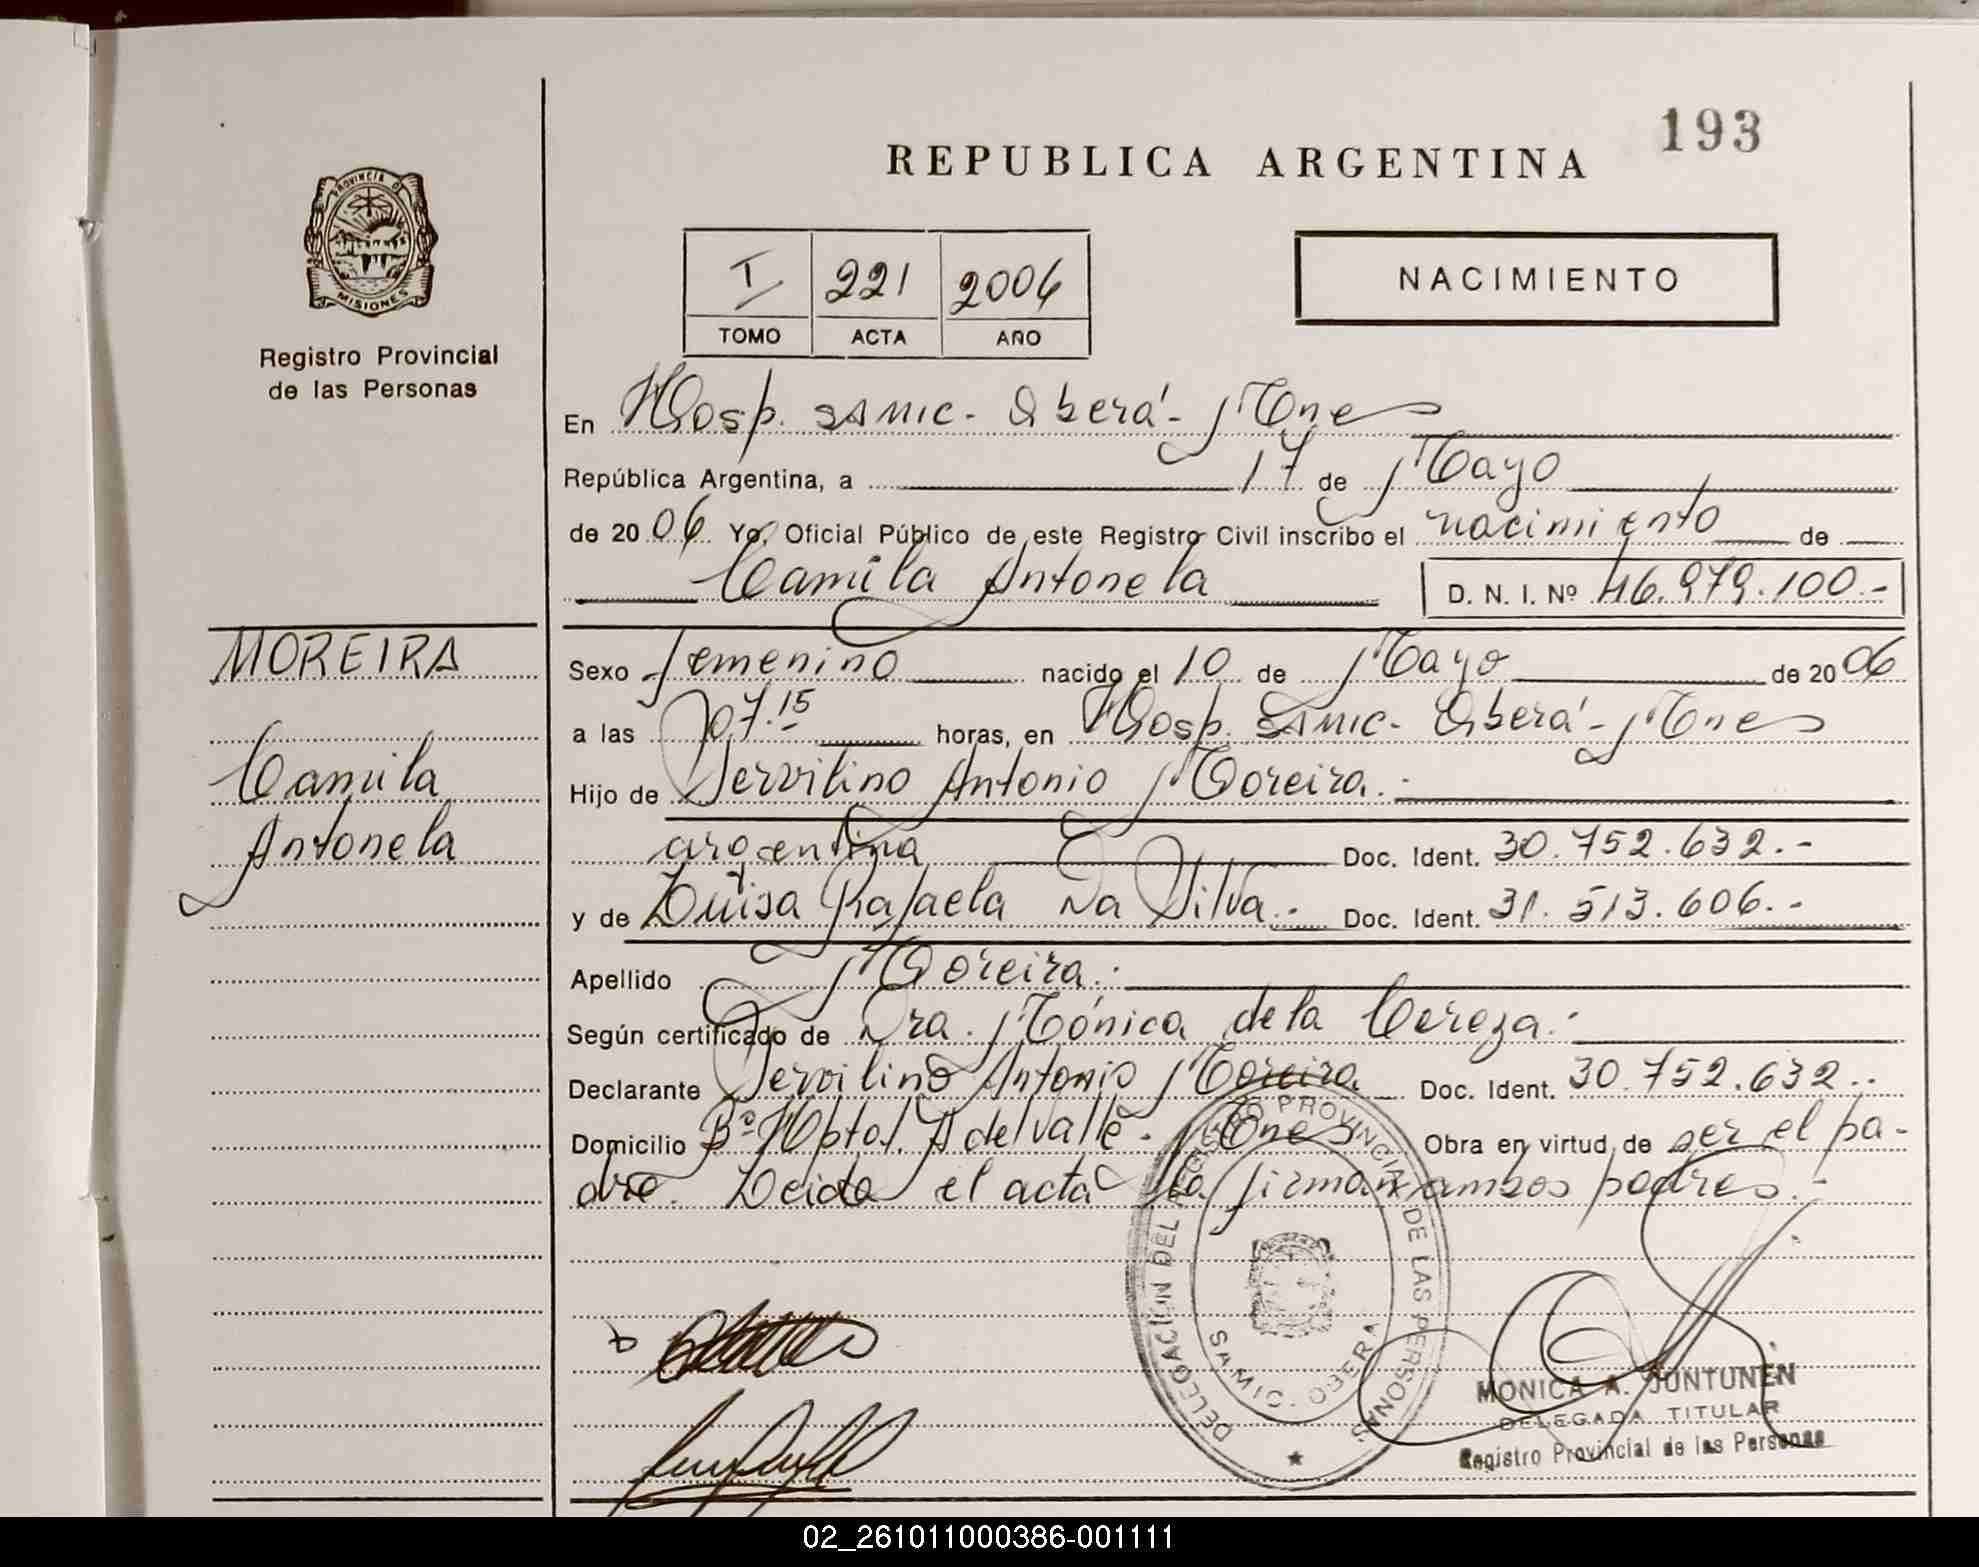 193
REPUBLICA ARGENTINA
PROVINCIA DE
MISIONES
Registro Provincial
de las Personas
I 221 2006
TOMO ACTA AÑO
NACIMIENTO
En Hosp. SAMIC - Oberá - Mnes
República Argentina, a 17 de Mayo
de 2006 Yo, Oficial Público de este Registro Civil inscribo el nacimiento de
Camila Antonela D. N. I. Nº 46.979.100.-
MOREIRA
Camila
Antonela
Sexo femenino nacido el 10 de Mayo de 2006
a las 07.15 horas, en Hosp. SAMIC - Oberá - Mnes
Hijo de Servilino Antonio Moreira.-
argentina Doc. Ident. 30.752.632.-
y de Luisa Rafaela Da Silva.- Doc. Ident. 31.513.606.-
Apellido Moreira.-
Según certificado de Dra. Mónica de la Cereza.-
Declarante Servilino Antonio Moreira Doc. Ident. 30.752.632.-
Domicilio Bº Hptal. A del valle - Mnes Obra en virtud de ser el pa-
dre. Leida el acta la firman ambos padres.-
DELEGACION DEL REGISTRO PROVINCIAL DE LAS PERSONAS
SAMIC - OBERA
MONICA A. JUNTUNEN
DELEGADA TITULAR
Registro Provincial de las Personas
02_261011000386-001111